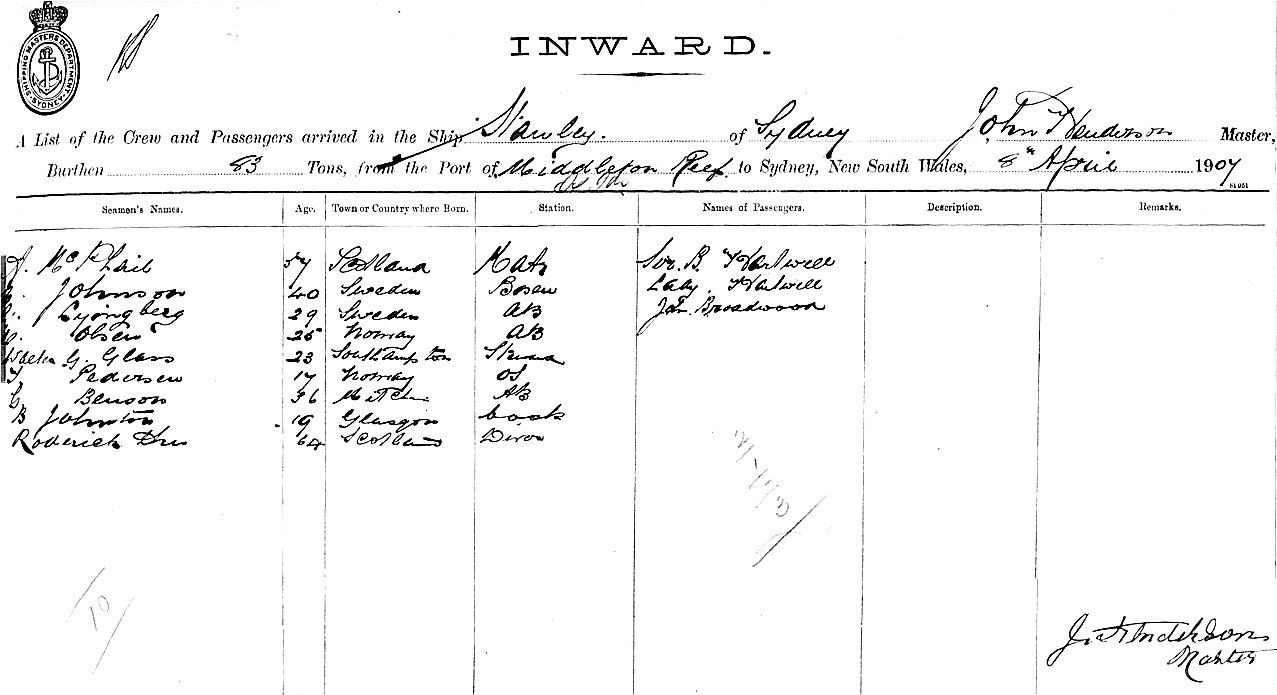 SHIPPING MASTERS DEPARTMENT SYDNEY
INWARD.
A List of the Crew and Passengers arrived in the Ship Stanley. of Sydney John Henderson Master,
Burthen 83 Tons, from the Port of Middleton Reef to Sydney, New South Wales, 8th April 1907
Seamen's Names. Age. Town or Country where Born. Station. Names of Passengers. Description. Remarks.
McPhail 57 Scotland Mate Sir B. Hartwell
Johnson 40 Sweden Bosen Lady Hartwell
Ljongberg 29 Sweden AB Broadwood
Olsen 25 Norway AB
G. Glass 23 Southampton
Pedersen 17 Norway OS
C Benson 36 AB
B Johnston 19 Glasgow Cook
Roderick 64 Scotland
10
Henderson
Master